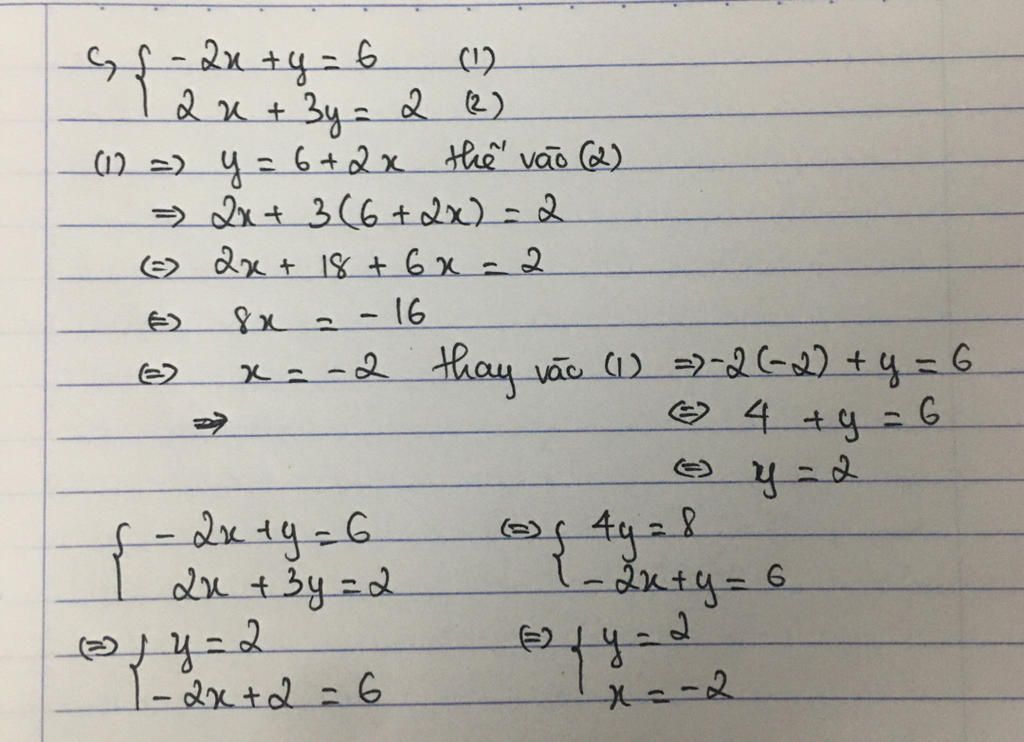 c, { - 2x + y = 6 (1)
2x + 3y = 2 (2)
(1) => y = 6 + 2x thế vào (2)
=> 2x + 3(6 + 2x) = 2
<=> 2x + 18 + 6x = 2
<=> 8x = - 16
<=> x = - 2 thay vào (1) => -2(-2) + y = 6
=> <=> 4 + y = 6
<=> y = 2
{ - 2x + y = 6 <=> { 4y = 8
2x + 3y = 2 - 2x + y = 6
<=> { y = 2 <=> { y = 2
- 2x + 2 = 6 x = - 2